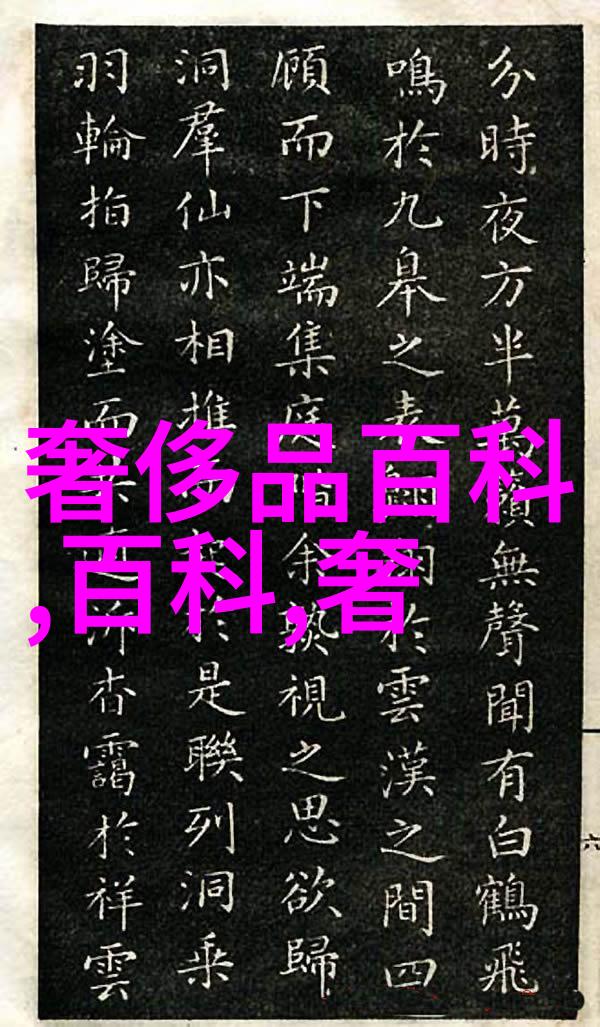 分時夜方半萬籟無聲聞有白鶴飛
鳴於九皋之表翱翔於雲漢之間四
顧而下端集庭余視之思欲歸
洞羣仙亦相推於是聯列洞乘
羽輪拍歸塗而杏靄於祥雲
奢侈品百科
,百科,奢
六